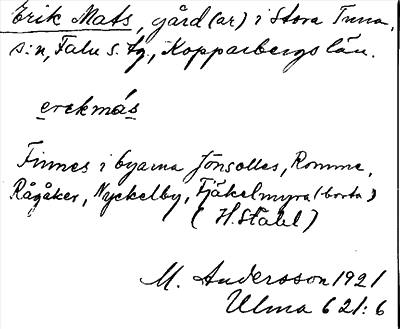 Erik Mats, gård(ar) i Stora Tuna,
s:n, Falu s. tg., Kopparbergs län.
erekmás
Finnes i byarna Jönsolles, Romme,
Rågåker, Nyckelby, Fjäkelmyra (borta)
(H. Ståhl)
M. Andersson 1921
Ulma 621:6